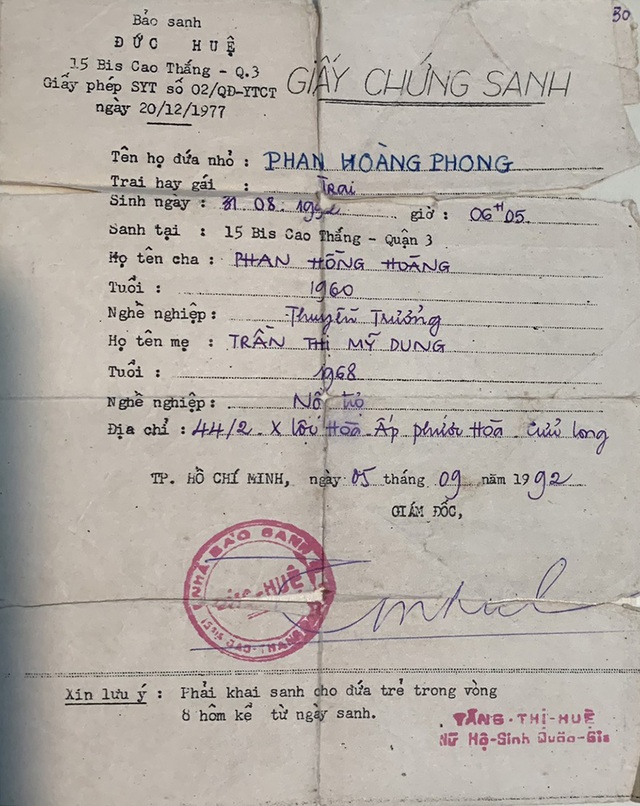 30
Bảo sanh
ĐỨC HUỆ
15 Bis Cao Thắng - Q.3
Giấy phép SYT số 02/QĐ-YTCT
ngày 20/12/1977
GIẤY CHỨNG SANH
Tên họ đứa nhỏ : PHAN HOÀNG PHONG
Trai hay gái : Trai
Sinh ngày : 31 08 1992 giờ : 06H05
Sanh tại : 15 Bis Cao Thắng - Quận 3
Họ tên cha : PHAN HỒNG HOÀNG
Tuổi : 1960
Nghề nghiệp: Thuyền Trưởng
Họ tên mẹ : TRẦN THỊ MỸ DUNG
Tuổi : 1968
Nghề nghiệp: Nội trợ
Địa chỉ : 44/2 X Hòa Ấp phước Hòa Cửu long
TP. HỒ CHÍ MINH, ngày 05 tháng 09 năm 1992
GIÁM ĐỐC,
NHÀ BẢO SANH
ĐỨC-HUỆ
15 BIS CAO-THẮNG
Xin lưu ý : Phải khai sanh cho đứa trẻ trong vòng
8 hôm kể từ ngày sanh.
TĂNG-THỊ-HUỆ
Nữ Hộ-Sinh Quốc-Gia